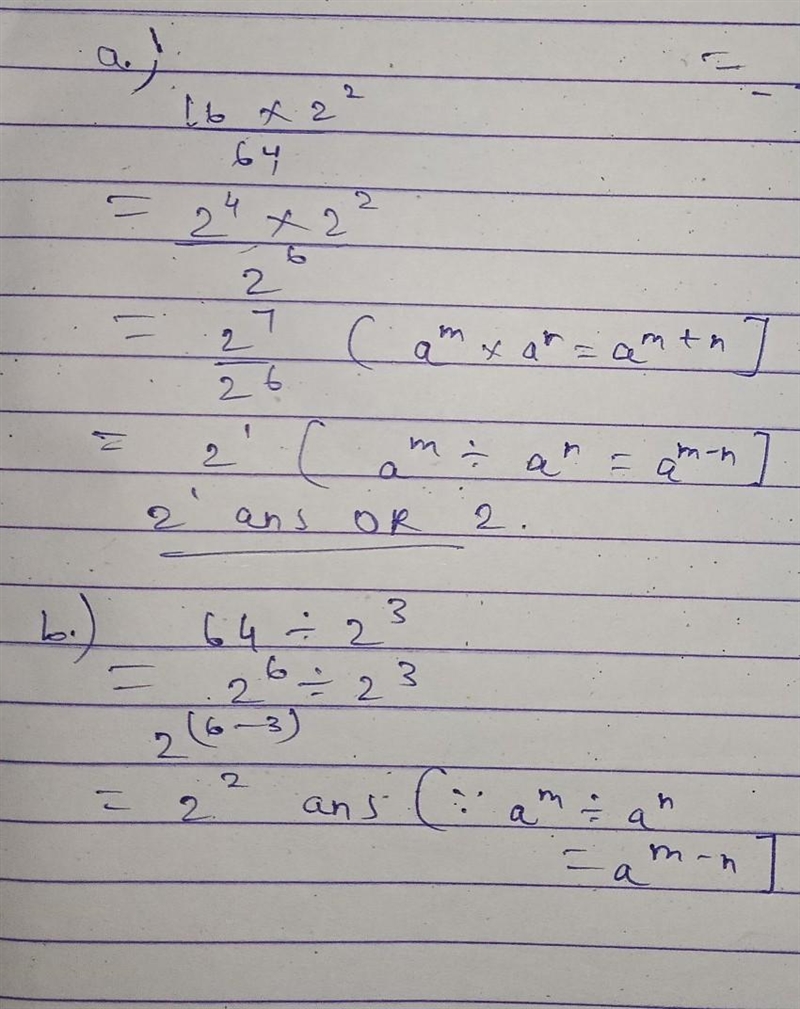 a.)
16 × 2²
64
= 2⁴ × 2²
2⁶
= 2⁷ ( aᵐ × aⁿ = aᵐ⁺ⁿ ]
2⁶
= 2¹ ( aᵐ ÷ aⁿ = aᵐ⁻ⁿ ]
2¹ ans OR 2.
b.) 64 ÷ 2³
= 2⁶ ÷ 2³
2⁽⁶⁻³⁾
= 2² ans ( ∵ aᵐ ÷ aⁿ
= aᵐ⁻ⁿ ]